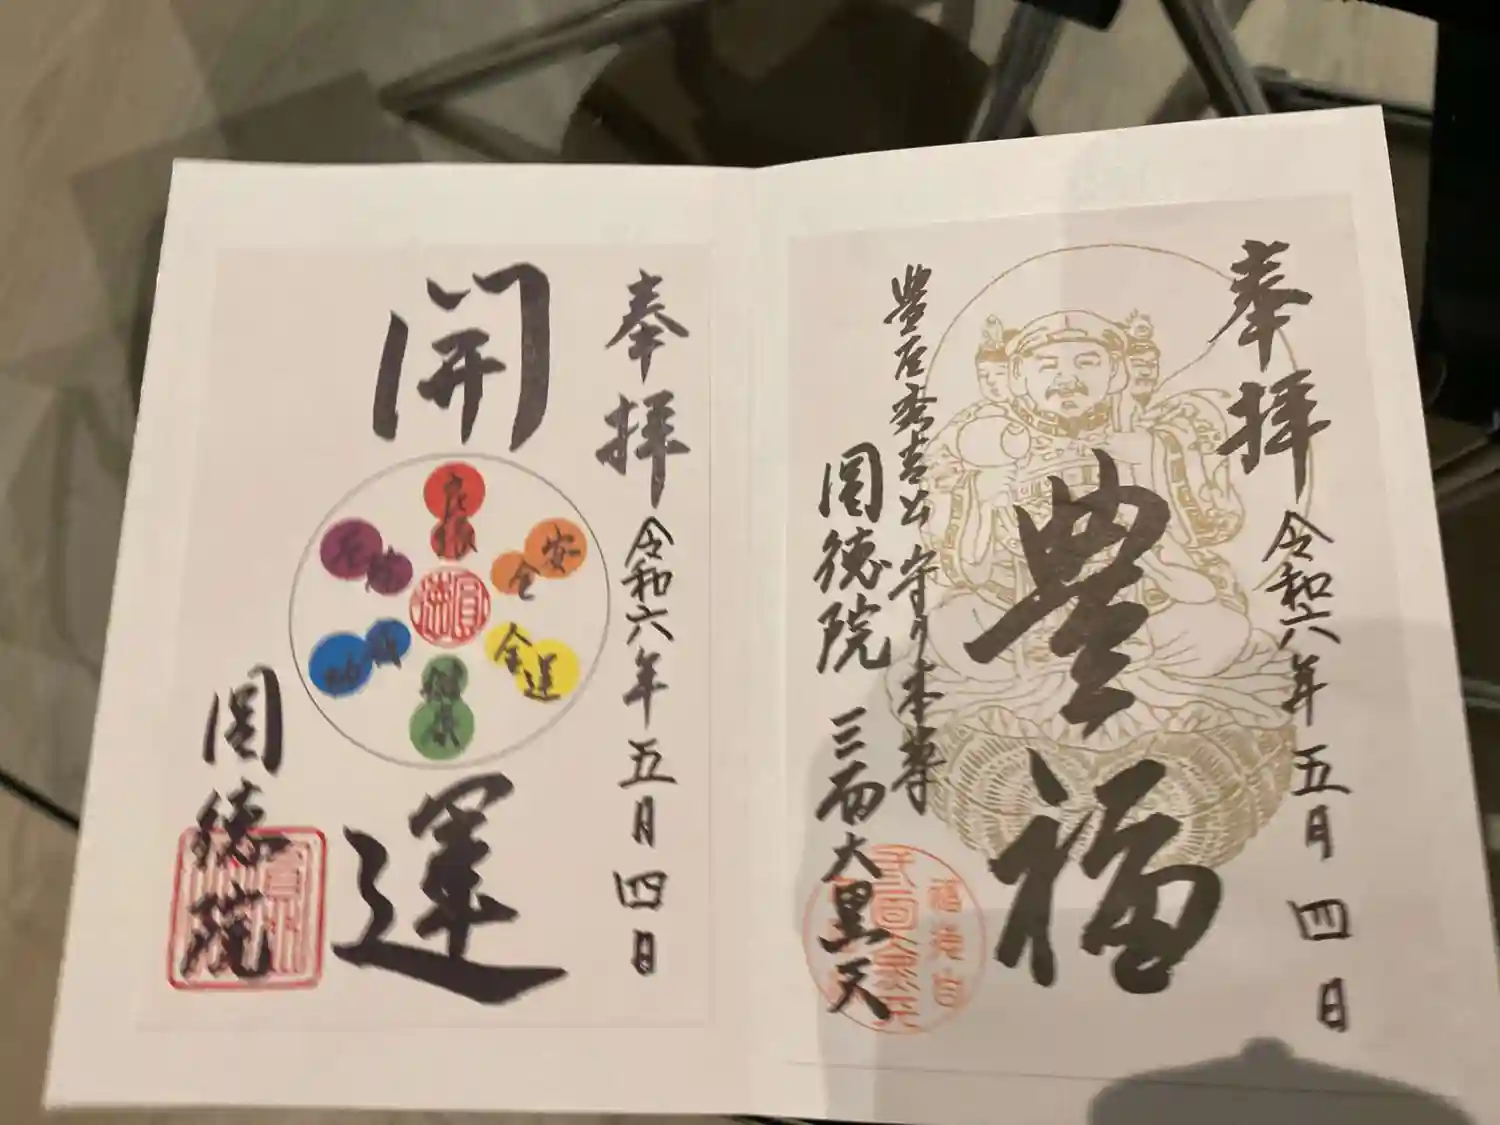 奉拝
令和六年五月四日
豊福
豊臣秀吉公守り本尊
圓徳院
三面大黒天
奉拝
令和六年五月四日
開運
安全
金運
健康
圓徳院